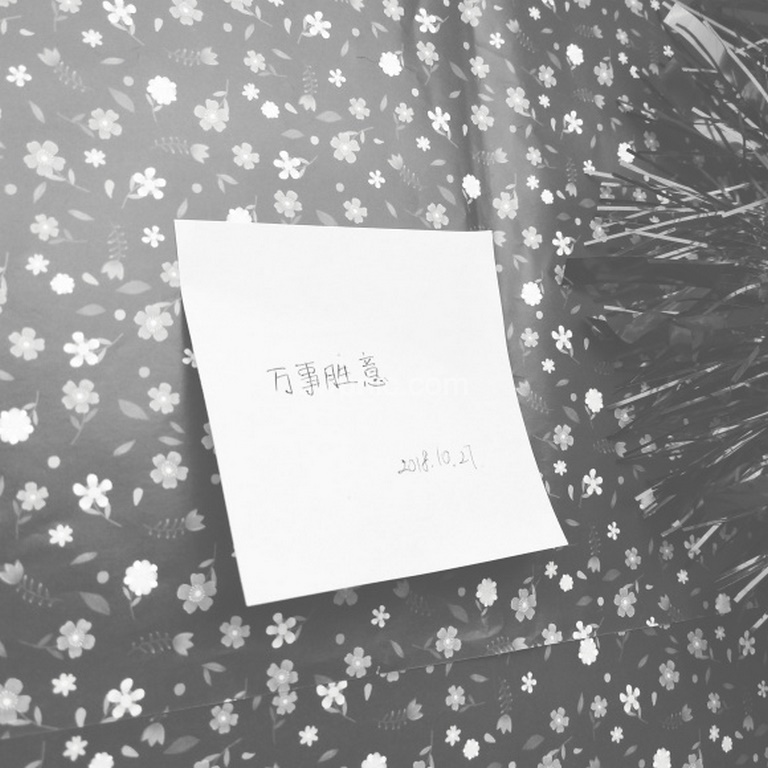 万事胜意
2018.10.27